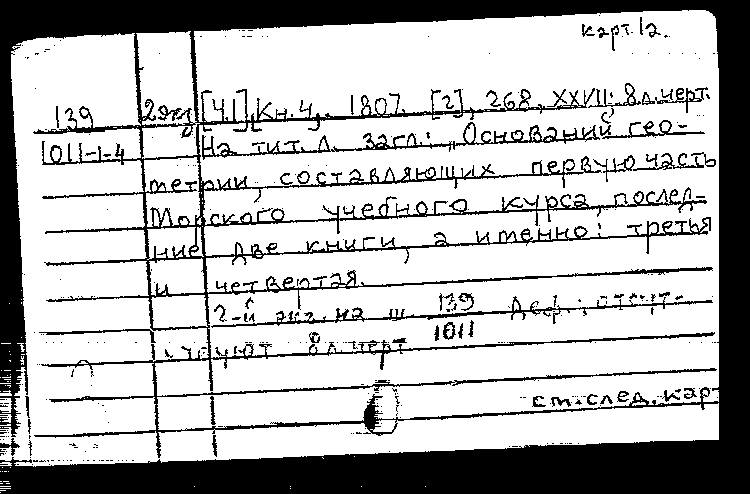 карт. 12.
139 2 экз [Ч.1], Кн. 4, 1807. [2], 268, XXVII; 8 л. черт.
1011-1-4 На тит. л. загл.: „Оснований гео-
метрии, составляющих первую часть
Морского учебного курса, послед-
ние две книги, а именно: третья
и четвертая.
2-й экз. на ш. 139/1011 Деф.: отсут-
ствуют 8 л. черт.
см. след. кар